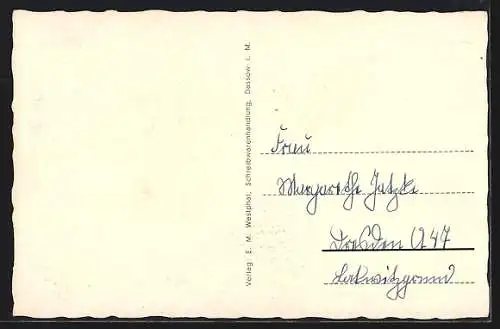 Verlag E. M. Westphal, Schreibwarenhandlung, Dassow i. M.
Frau
Margarethe Jatzke
Dresden A 47
Lockwitzgrund